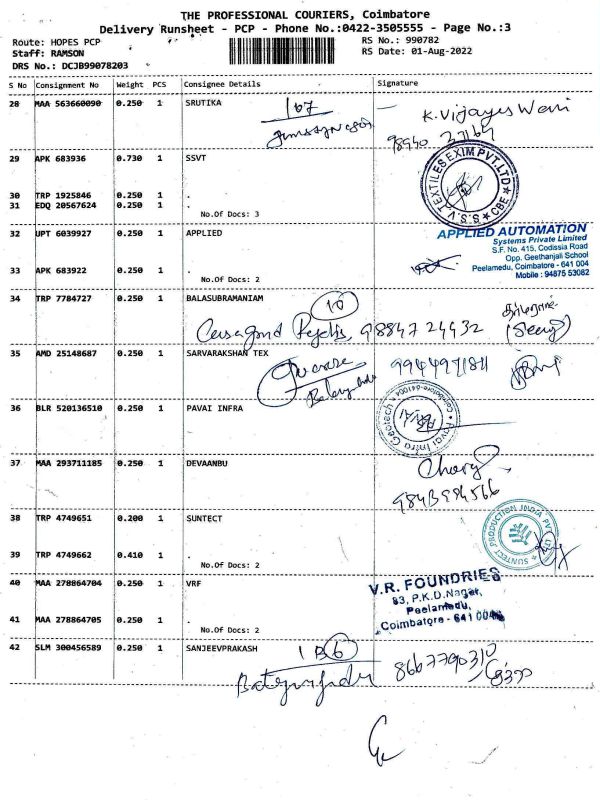 THE PROFESSIONAL COURIERS, Coimbatore
Delivery Runsheet - PCP - Phone No.:0422-3505555 - Page No.:3
Route: HOPES PCP
RS No.: 990782
Staff: RAMSON
RS Date: 01-Aug-2022
DRS No.: DCJB99078203
S No Consignment No Weight PCS Consignee Details Signature
28 MAA 563660090 0.250 1 SRUTIKA
167
K. Vijayeswari
29 APK 683936 0.730 1 SSVT
V.S.S. TEXTILES EXIM PVT.LTD CBE
30 TRP 1925846 0.250 1 .
31 EDQ 20567624 0.250 1 .
No.Of Docs: 3
32 UPT 6039927 0.250 1 APPLIED
APPLIED AUTOMATION
Systems Private Limited
S.F. No. 415, Codissia Road
Opp. Geethanjali School
Peelamedu, Coimbatore - 641 004
Mobile : 94875 53082
33 APK 683922 0.250 1 .
No.Of Docs: 2
34 TRP 7784727 0.250 1 BALASUBRAMANIAM
10
98847 24432
35 AMD 25148687 0.250 1 SARVARAKSHAN TEX
9944971811
36 BLR 520136510 0.250 1 PAVAI INFRA
Pavai Infra Geotech Coimbatore-641004
PAVAI
37 MAA 293711185 0.250 1 DEVAANBU
9843984566
38 TRP 4749651 0.200 1 SUNTECT
SUNTECT PRODUCTION INDIA PVT LTD
39 TRP 4749662 0.410 1 .
No.Of Docs: 2
40 MAA 278864704 0.250 1 VRF
V.R. FOUNDRIES
83, P.K.D.Nagar,
Peelamedu,
Coimbatore - 641 004
41 MAA 278864705 0.250 1 .
No.Of Docs: 2
42 SLM 300456589 0.250 1 SANJEEVPRAKASH
8667790310